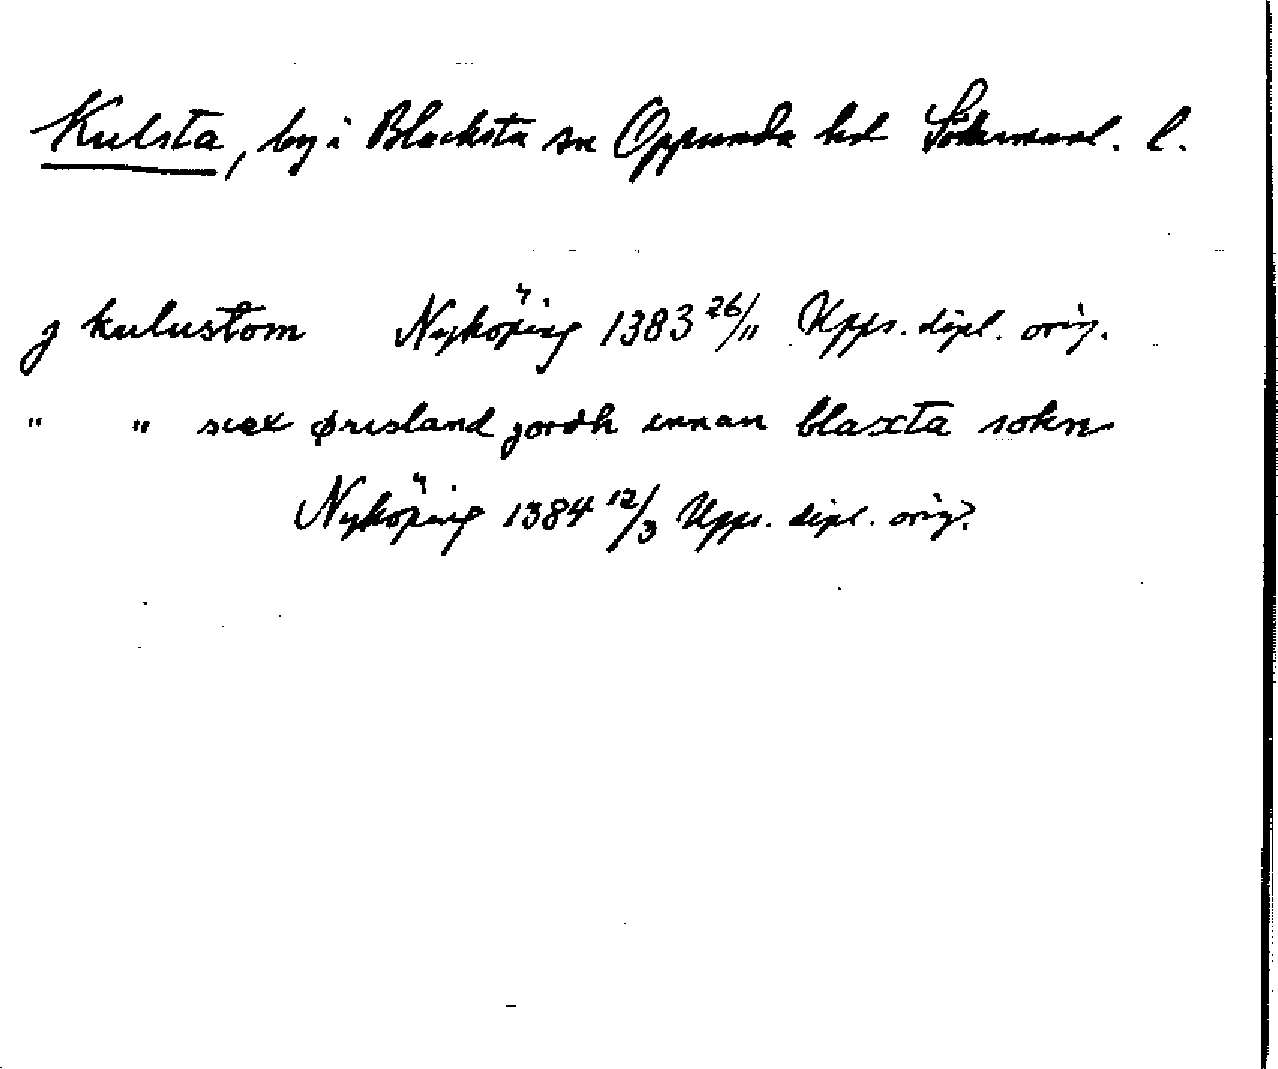 Kulsta, by i Blacksta sn Oppunda hd Södermanl. l.
j kulustom Nyköping 1383 26/11 Upps. dipl. orig.
" " siæx øresland jordh innan blaxta sokn
Nyköping 1384 12/3 Upps. dipl. orig.